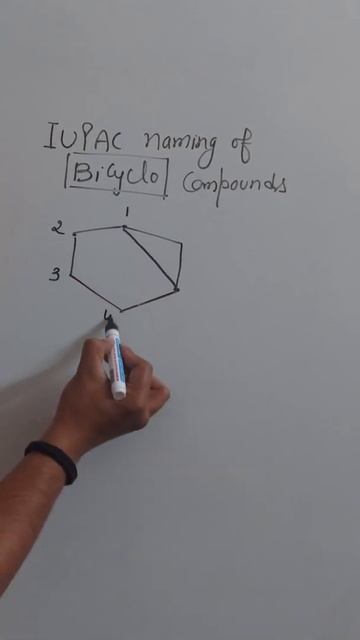 IUPAC naming of
Bicyclo Compounds
1
2
3
4